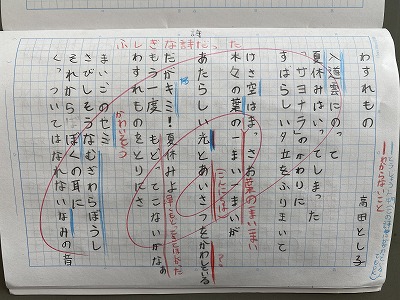 詩
ふしぎな詩だった
わすれもの
高田とし子
わからないこと
入道雲にのって
夏休みはいってしまった
「サヨナラ」のかわりに
すばらしい夕立をふりまいて
けさ空はまっさお
木々の葉の一まい一まいが
葉の一まい一まい
あたらしい光とあいさつをかわしている
だがキミ!夏休みよ
もう一度 もどってこないかなあ
わすれものをとりにさ
かわいそう
まいごのセミ
さびしそうなむぎわらぼうし
それから ぼくの耳に
くっついてはなれないなみの音